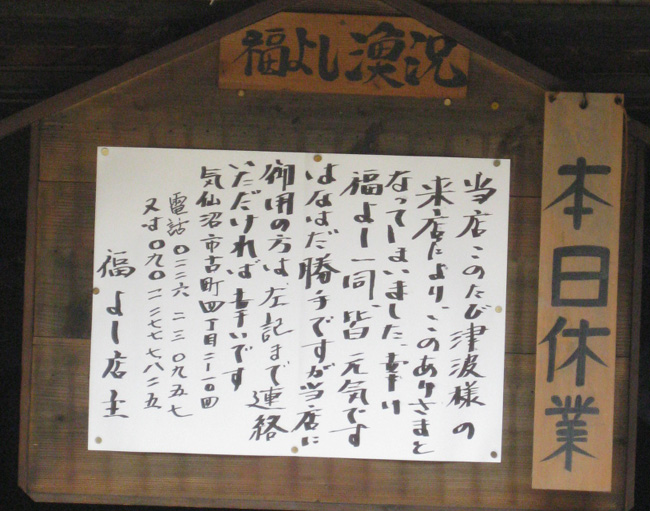 福よし漁況
本日休業
当店このたび津波様の
来店により、このありさまと
なってしまいました、幸い
福よし一同、皆元気です
はなはだ勝手ですが当店に
御用の方は、左記まで連絡
いただければ幸いです
気仙沼市古町四丁目二ー一〇四
電話〇二二六ー二三ー〇九五七
又は〇九〇ー二二七七ー七八二五
福よし店主